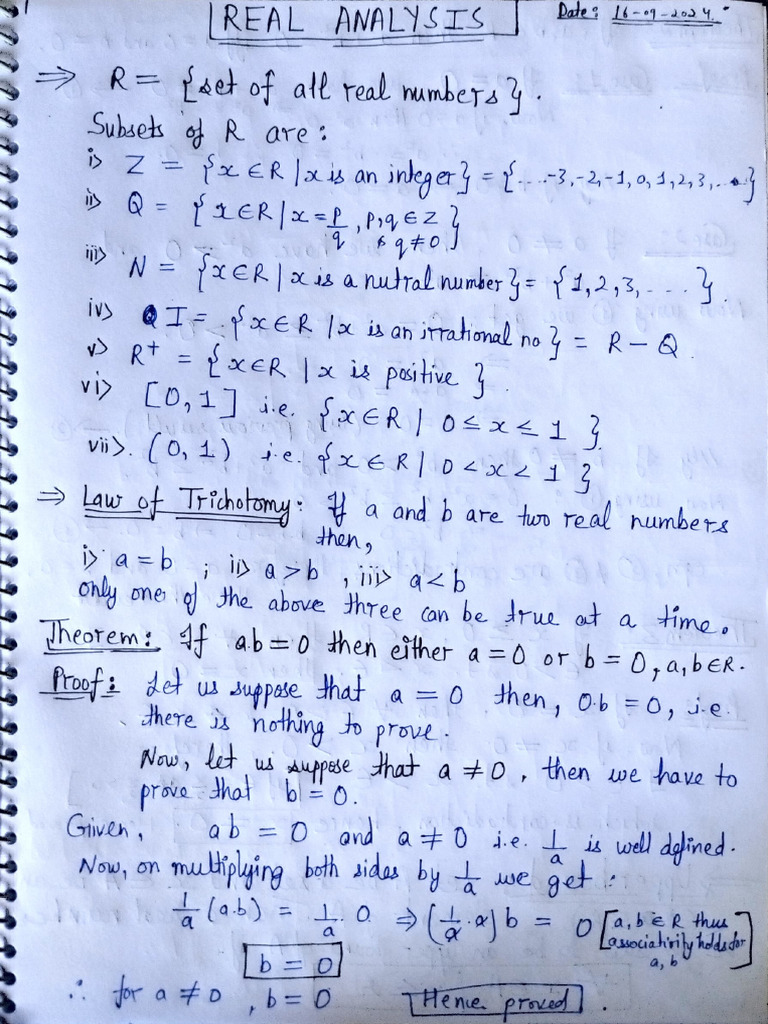 REAL ANALYSIS
Date: 16-09-2024.
⇒ R = {set of all real numbers}.
Subsets of R are:
i> Z = {x ∈ R | x is an integer} = {...-3,-2,-1,0,1,2,3,...}
ii> Q = {x ∈ R | x = p/q, p,q ∈ Z & q ≠ 0}
iii> N = {x ∈ R | x is a nutral number} = {1,2,3,....}.
iv> I = {x ∈ R | x is an irrational no} = R - Q.
v> R⁺ = {x ∈ R | x is positive}.
vi> [0,1] i.e. {x ∈ R | 0 ≤ x ≤ 1}
vii>. (0,1) i.e. {x ∈ R | 0 < x < 1}
⇒ Law of Trichotomy: If a and b are two real numbers
then,
i> a = b ; ii> a > b , iii> a < b
only one of the above three can be true at a time.
Theorem: If a.b = 0 then either a = 0 or b = 0, a, b ∈ R.
Proof: Let us suppose that a = 0 then, 0.b = 0, i.e.
there is nothing to prove.
Now, let us suppose that a ≠ 0, then we have to
prove that b = 0.
Given, ab = 0 and a ≠ 0 i.e. 1/a is well defined.
Now, on multiplying both sides by 1/a we get:
1/a (a.b) = 1/a . 0 ⇒ (1/a . a) b = 0 [a, b ∈ R thus
associativity holds for
a, b]
b = 0
∴ for a ≠ 0, b = 0
Hence proved.